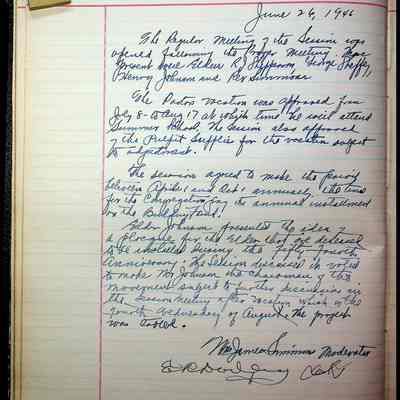 June 26, 1946
The Regular Meeting of the Session was
opened following the Prayer Meeting. Those
present were Elders R.J. Shepperson, George Sheffey,
Henry Johnson and Rev Simmons
The Pastors Vacation was approved from
July 8 - to Aug 17 at which time he will attend
Summer School. The Session also approved
of the Pulpit Supplies for the vacation subject
to adjustment.
The session agreed to make the period
between April 1 and Oct 1 annually the time
for the Congregation pay the annual installment
on the Building Fund.
Elder Johnson presented the idea of
a plaque for the Elders that are deceased
to be installed during the Fifty Fourth
Anniversary. The Session decided
to make Mr Johnson the Chairman of this
movement subject to further discussion in
the Session Meeting after vacation which is the
fourth Wednesday of August. The project
was tabled.
James Simmons Moderator